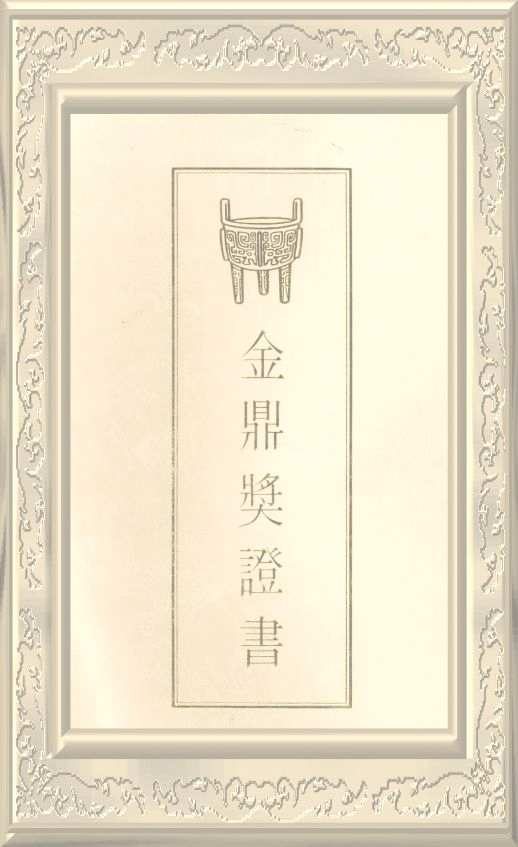 金鼎獎證書